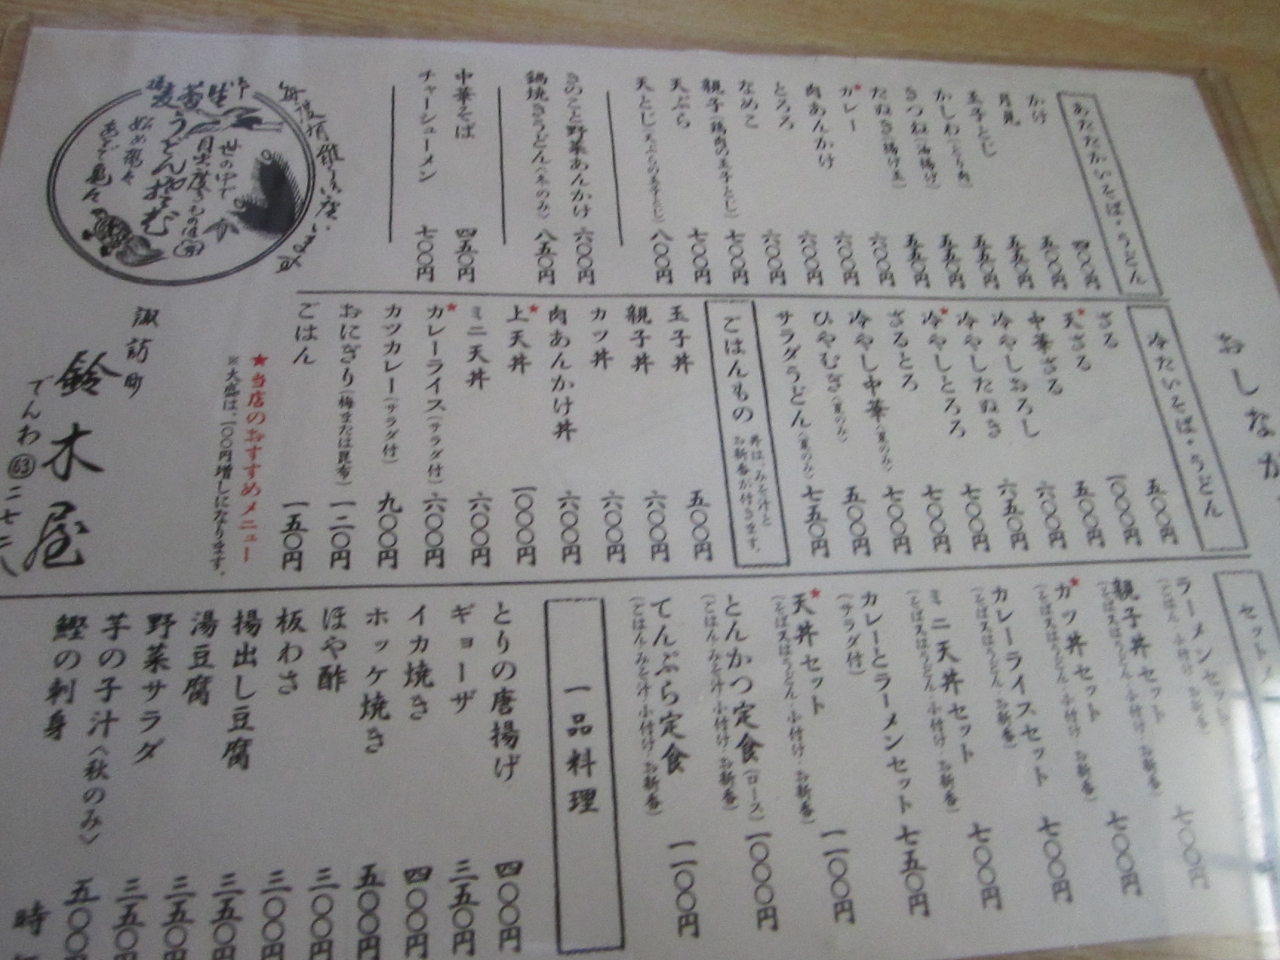 おしなが
あたたかいそば・うどん
かけ 四〇〇円
月見 五〇〇円
玉子とじ 五五〇円
かしわ(とり肉) 五五〇円
きつね(油揚げ) 五五〇円
たぬき(揚げ玉)
カレー 六〇〇円
肉あんかけ 六〇〇円
とろろ 六〇〇円
なめこ 六〇〇円
親子(鶏肉の玉子とじ) 七〇〇円
天ぷら 七〇〇円
天とじ(天ぷらの玉子とじ) 八〇〇円
きのこと野菜あんかけ 六〇〇円
鍋焼きうどん(冬のみ) 八五〇円
中華そば 四五〇円
チャーシューメン 七〇〇円
冷たいそば・うどん
ざる 五〇〇円
天ざる 一〇〇〇円
中華ざる 五〇〇円
冷やしおろし 六〇〇円
冷やしたぬき 六五〇円
冷やしとろろ 七〇〇円
ざるとろ 七〇〇円
冷やし中華(夏のみ) 七〇〇円
ひやむぎ(夏のみ) 五〇〇円
サラダうどん(夏のみ) 七五〇円
ごはんもの 丼は、みそ汁と
お新香が付きます。
玉子丼 五〇〇円
親子丼 六〇〇円
カツ丼 六〇〇円
肉あんかけ丼 六〇〇円
上天丼 一〇〇〇円
ミニ天丼 六〇〇円
カレーライス(サラダ付) 六〇〇円
カツカレー(サラダ付) 九〇〇円
おにぎり(梅または昆布) 一二〇円
ごはん 一五〇円
★当店のおすすめメニュー
※大盛は、一〇〇円増しになります。
ラーメンセット 七〇〇円
親子丼セット 七〇〇円
(そば又はうどん・小付け・お新香)
カツ丼セット 七〇〇円
(そば又はうどん・小付け・お新香)
カレーライスセット 七〇〇円
(そば又はうどん・お新香)
ミニ天丼セット
(そば又はうどん・小付け・お新香)
カレーとラーメンセット 七五〇円
(サラダ付)
天丼セット 一一〇〇円
(そば又はうどん・小付け・お新香)
とんかつ定食(ロース) 一〇〇〇円
(ごはん・みそ汁・小付け・お新香)
てんぷら定食 一一〇〇円
(ごはん・みそ汁・小付け・お新香)
一品料理
とりの唐揚げ 四〇〇円
ギョーザ 三五〇円
イカ焼き 四〇〇円
ホッケ焼き 五〇〇円
ほや酢 三〇〇円
板わさ 三〇〇円
揚出し豆腐 三五〇円
湯豆腐 三五〇円
野菜サラダ 三五〇円
芋の子汁〈秋のみ〉 五〇〇円
鰹の刺身 時
諏訪町
鈴木屋
でんわ63二七二八